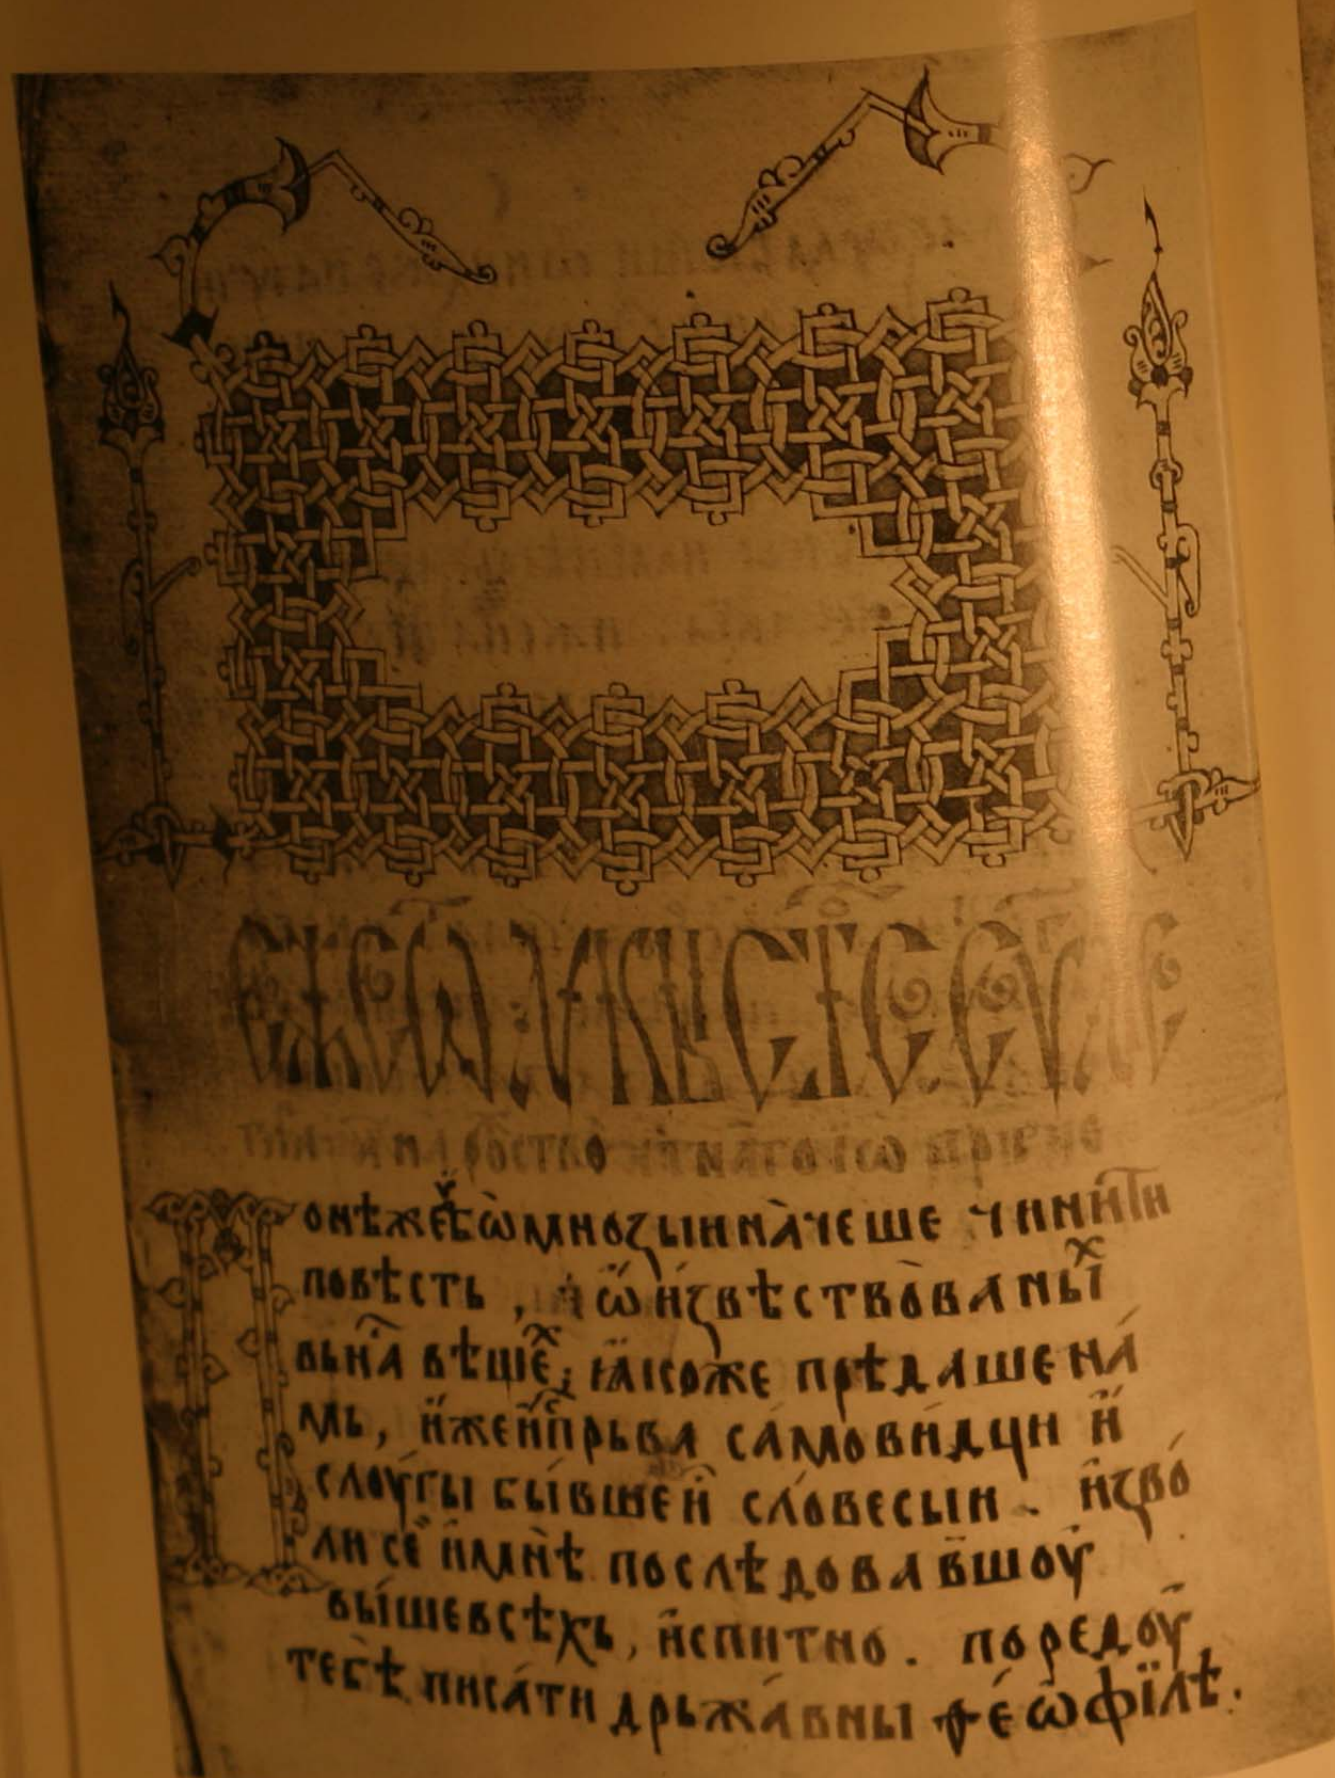 ЕЖЕ Ѿ ЛꙊКЫ СТ҃ОЕ ЕѴ҃ЛЕ
на рѡство
Понѣже ѹ҆́бѡ мно́ꙁыи нач́еше чини́ти
повѣсть, ѡ҆ и҆ꙁвѣствова́ныⷯ
вьна́ вѣшеⷯ, ꙗ҆́коже прѣдаше на́
мь, и҆́же и҆спрьва са́мови́дци и҆
слоу́гы бы́вшеи҆ словесыи. и҆ꙁво
ли се и҆ мнѣ̀ послѣдова́вшоу
вы́шевсѣхь, и҆спитно. поредоу́
тебѣ̀ писа́ти дрьжа́вны ѳе́ѡфїлѣ.